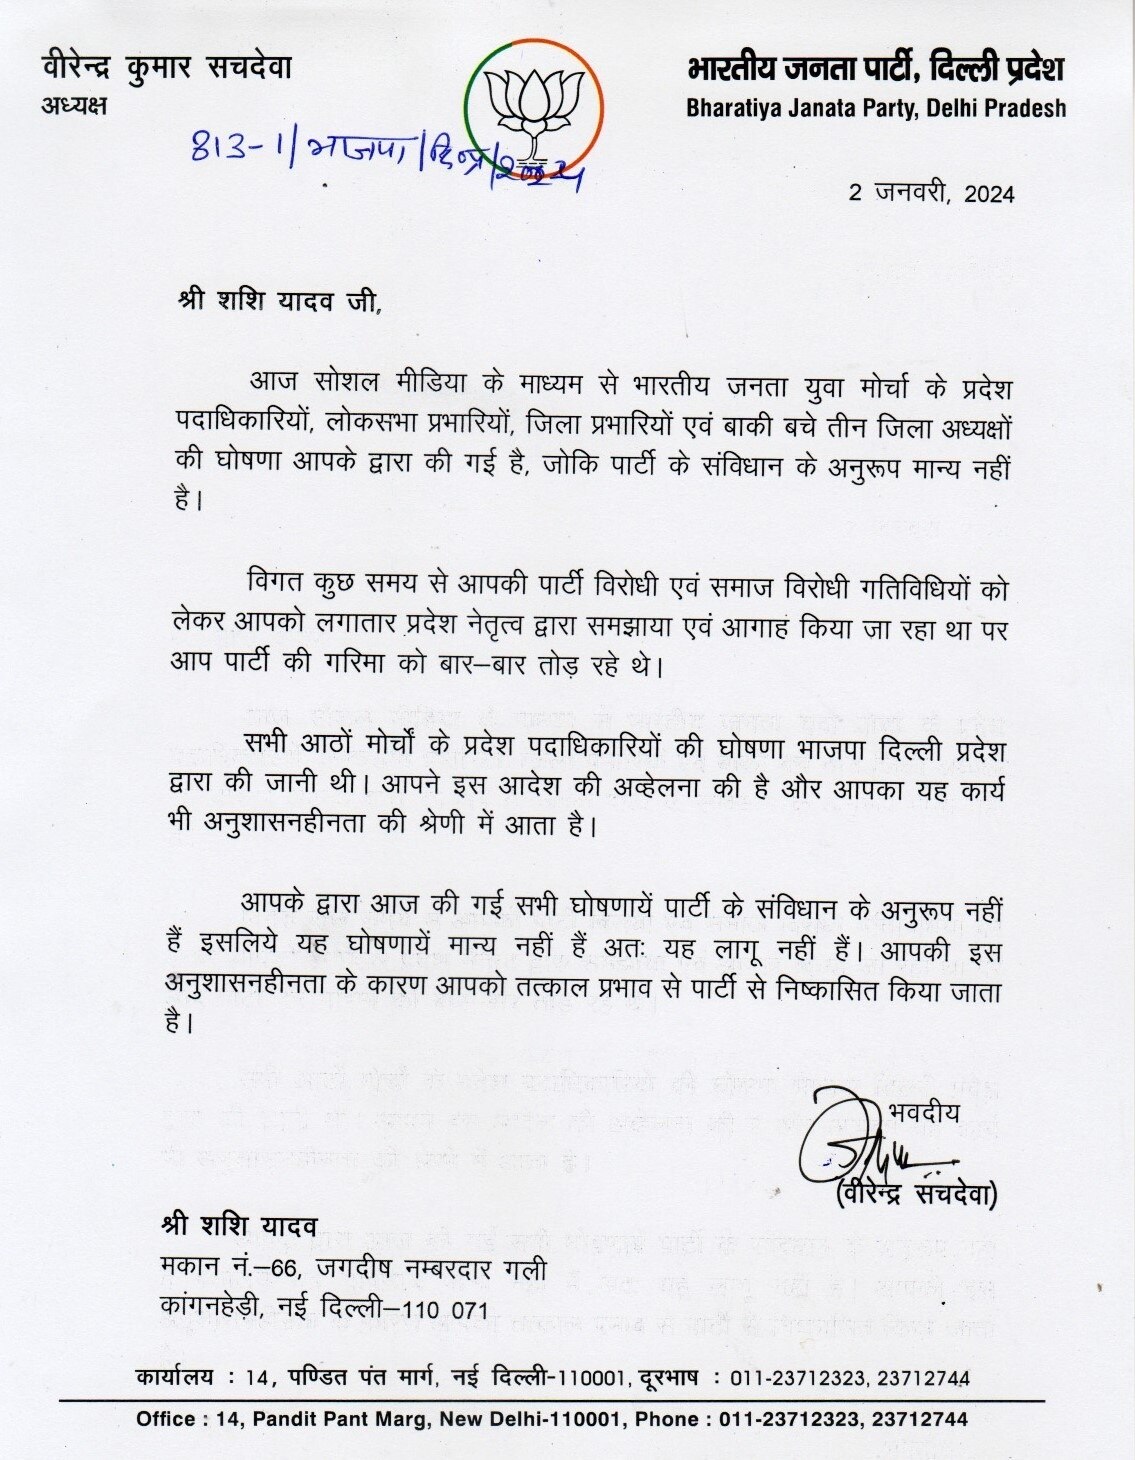 वीरेन्द्र कुमार सचदेवा
अध्यक्ष
भारतीय जनता पार्टी, दिल्ली प्रदेश
Bharatiya Janata Party, Delhi Pradesh
813-1/भाजपा/
2 जनवरी, 2024
श्री शशि यादव जी,
आज सोशल मीडिया के माध्यम से भारतीय जनता युवा मोर्चा के प्रदेश
पदाधिकारियों, लोकसभा प्रभारियों, जिला प्रभारियों एवं बाकी बचे तीन जिला अध्यक्षों
की घोषणा आपके द्वारा की गई है, जोकि पार्टी के संविधान के अनुरूप मान्य नहीं
है।
विगत कुछ समय से आपकी पार्टी विरोधी एवं समाज विरोधी गतिविधियों को
लेकर आपको लगातार प्रदेश नेतृत्व द्वारा समझाया एवं आगाह किया जा रहा था पर
आप पार्टी की गरिमा को बार–बार तोड़ रहे थे।
सभी आठों मोर्चों के प्रदेश पदाधिकारियों की घोषणा भाजपा दिल्ली प्रदेश
द्वारा की जानी थी। आपने इस आदेश की अव्हेलना की है और आपका यह कार्य
भी अनुशासनहीनता की श्रेणी में आता है।
आपके द्वारा आज की गई सभी घोषणायें पार्टी के संविधान के अनुरूप नहीं
हैं इसलिये यह घोषणायें मान्य नहीं हैं अतः यह लागू नहीं हैं। आपकी इस
अनुशासनहीनता के कारण आपको तत्काल प्रभाव से पार्टी से निष्कासित किया जाता
है।
भवदीय
(वीरेन्द्र सचदेवा)
श्री शशि यादव
मकान नं.–66, जगदीष नम्बरदार गली
कांगनहेड़ी, नई दिल्ली–110 071
कार्यालय : 14, पण्डित पंत मार्ग, नई दिल्ली-110001, दूरभाष : 011-23712323, 23712744
Office : 14, Pandit Pant Marg, New Delhi-110001, Phone : 011-23712323, 23712744